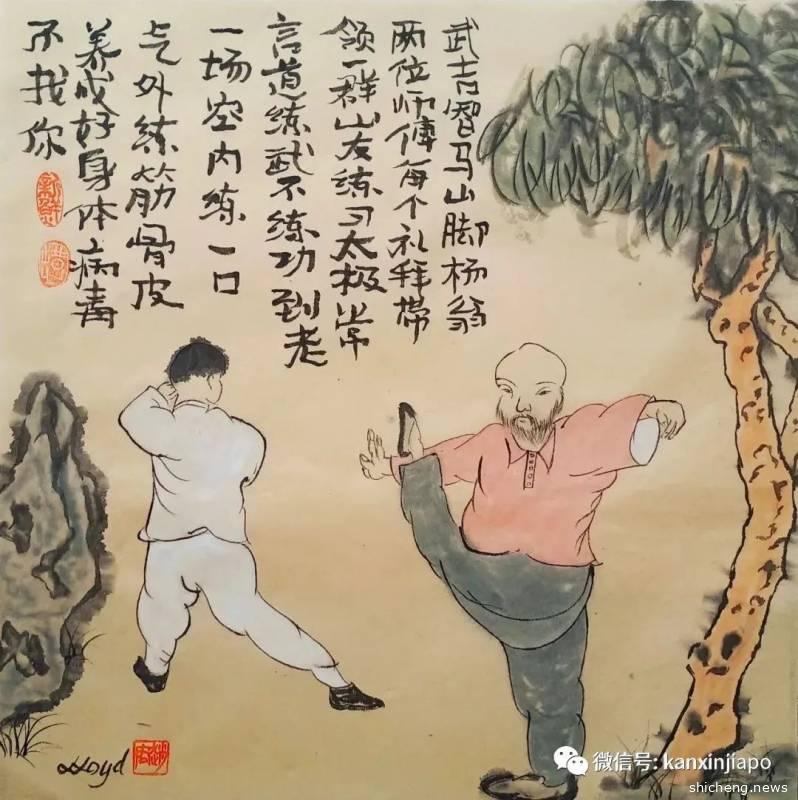 武吉智马山脚杨翁
两位师傅每个礼拜带
领一群山友练习太极常
言道练武不练功到老
一场空内练一口
气外练筋骨皮
养成好身体病毒
不找你
Lloyd
微信号: kanxinjiapo
shicheng.news